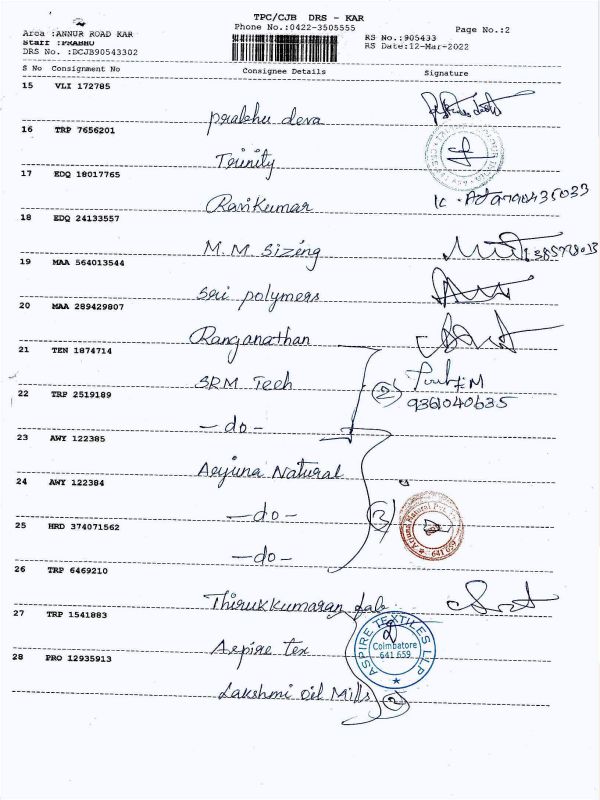 TPC/CJB DRS - KAR
Phone No.:0422-3505555
Page No.:2
Area :ANNUR ROAD KAR
Staff :PRABHU
DRS No. :DCJB90543302
RS No.:905433
RS Date:12-Mar-2022
S No Consignment No Consignee Details Signature
15 VLI 172785
Prabhu deva
16 TRP 7656201
Trinity
17 EDQ 18017765
Ravikumar
18 EDQ 24133557
M.M Sizing
19 MAA 564013544
Sri polymers
20 MAA 289429807
Ranganathan
21 TEN 1874714
SRM Tech
22 TRP 2519189
2
9361040635
-do-
23 AWY 122385
Arjuna Natural
24 AWY 122384
-do-
3
25 HRD 374071562
-do-
26 TRP 6469210
Thirukkumaran fab
27 TRP 1541883
Aspire tex
ASPIRE TEXTILES LLP
Coimbatore
641 659
28 PRO 12935913
Lakshmi Oil Mills
2